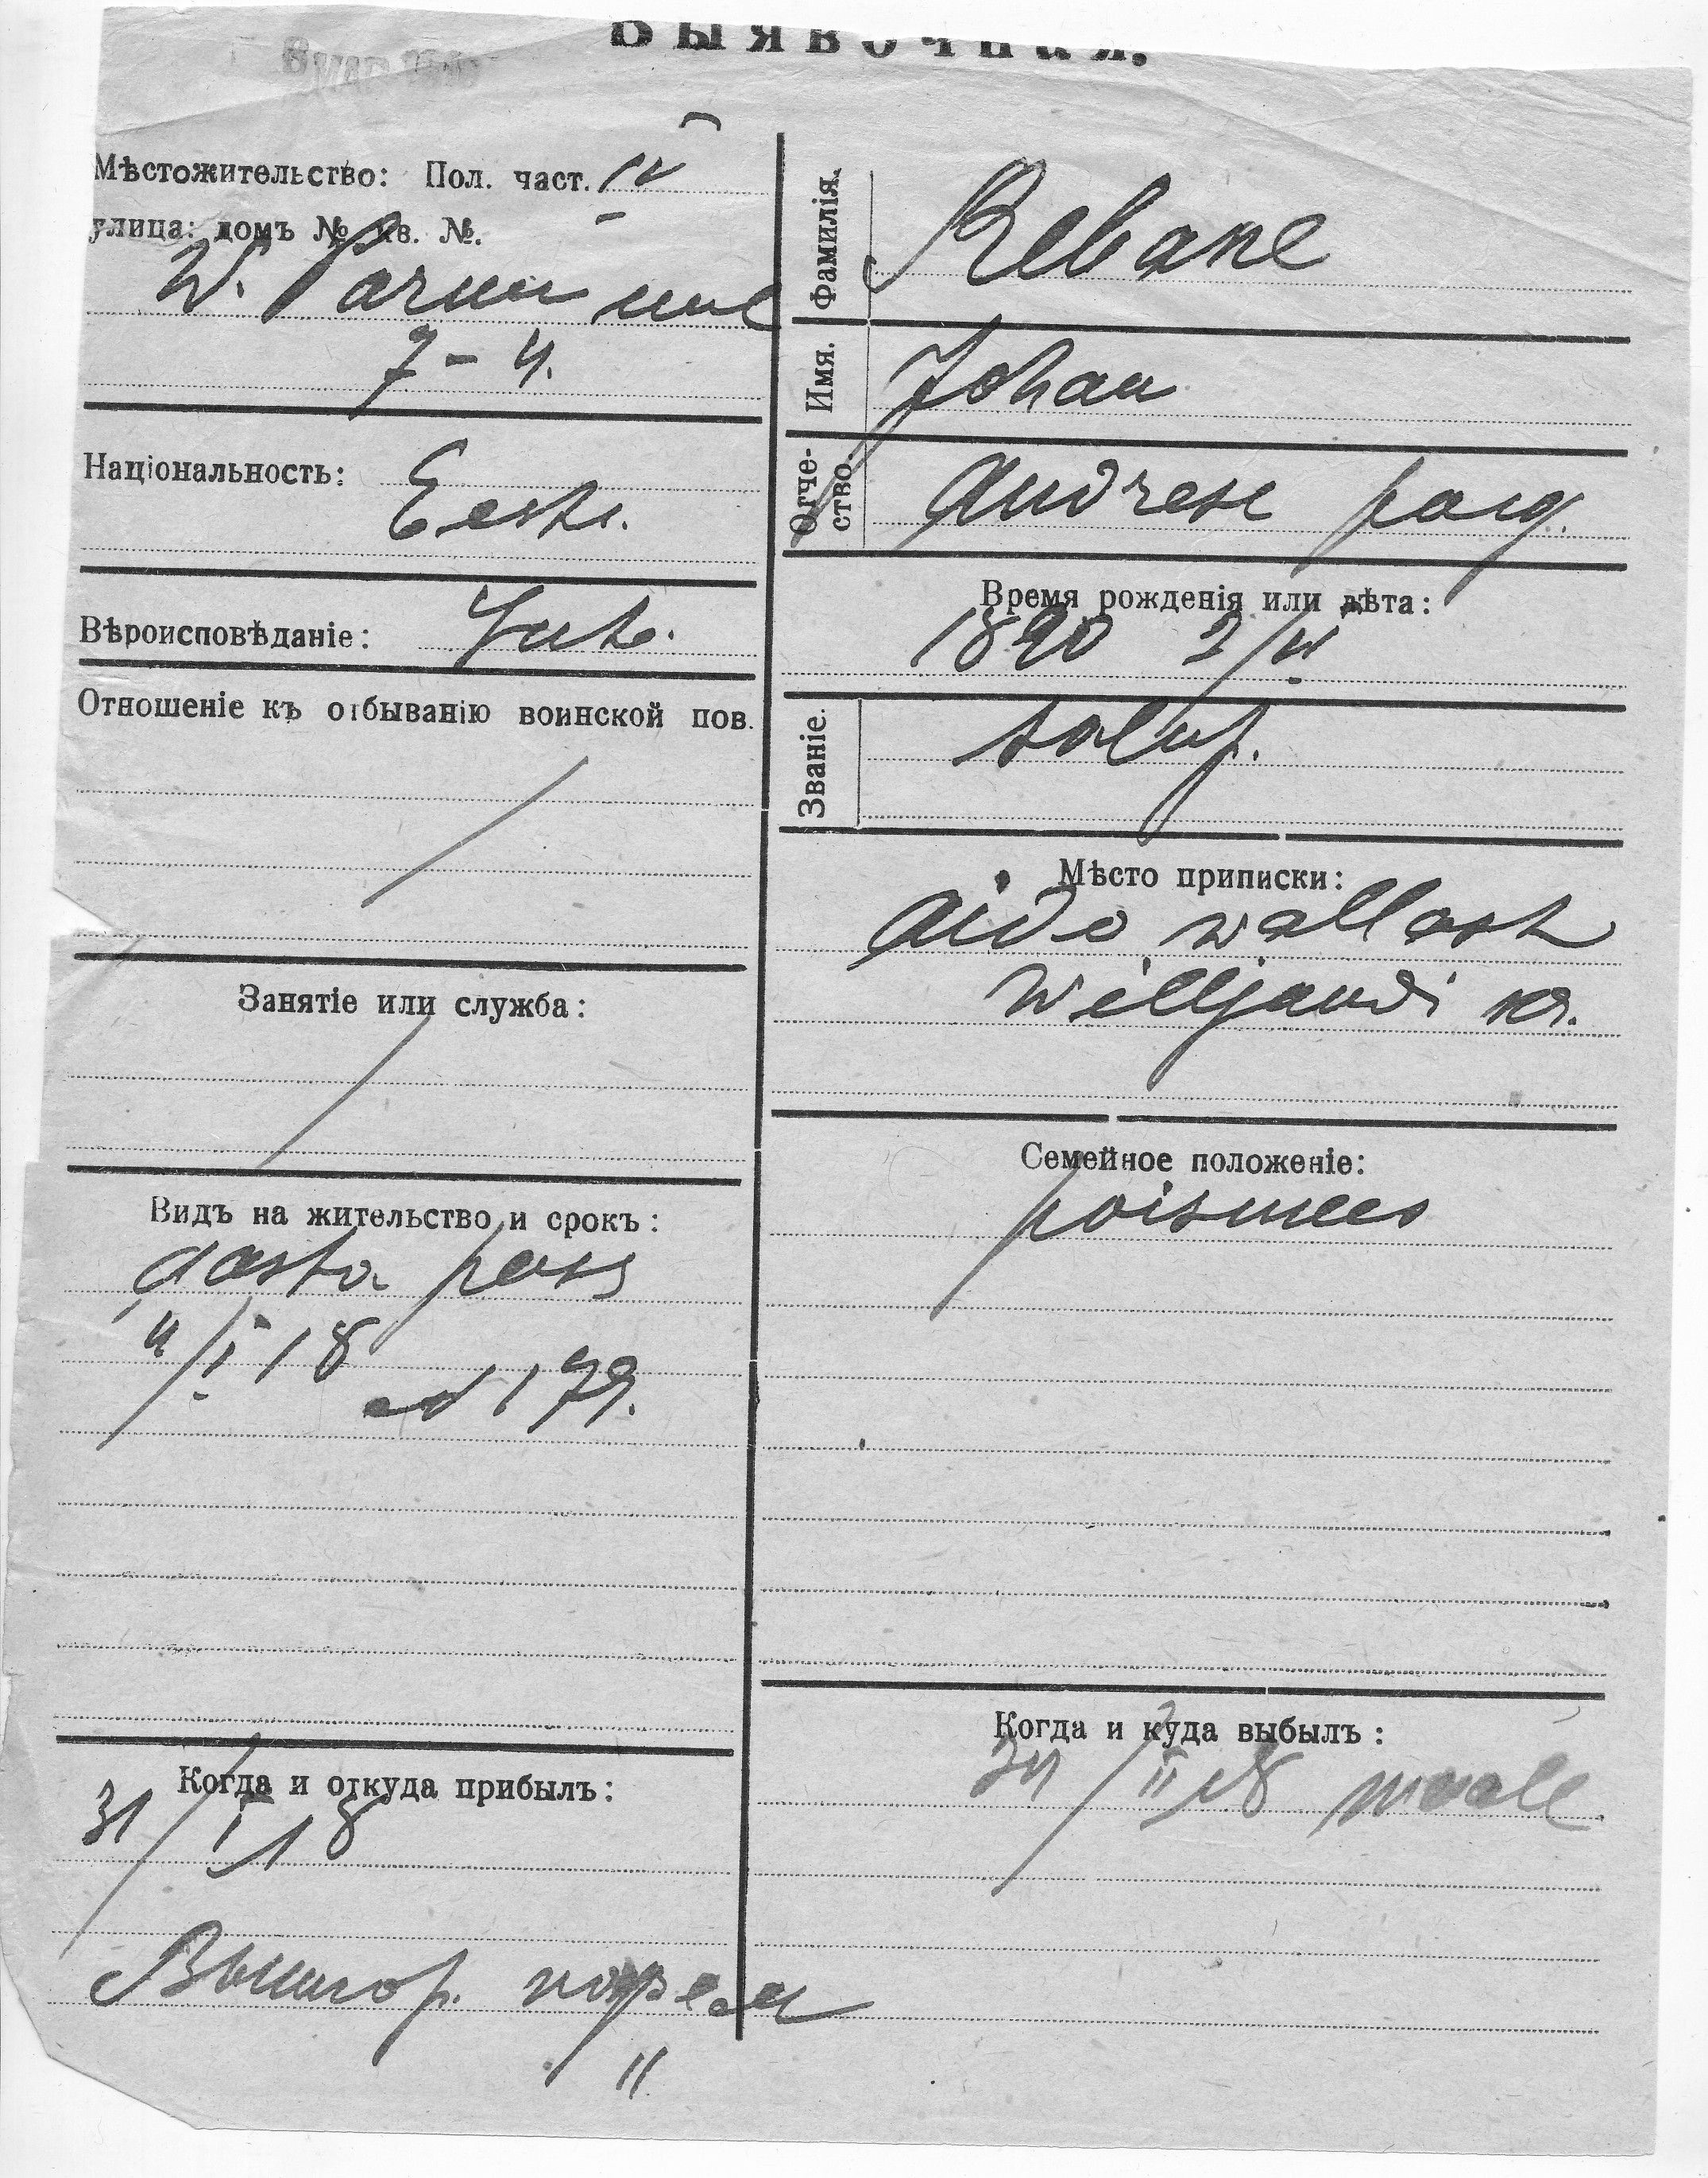 Выявочная.
Мѣстожительство: Пол. част. IV
улица: домъ № кв. №.
W. Pärnu uul
7 – 4.
Національность: Eesti.
Вѣроисповѣданіе: Luts.
Отношеніе къ отбыванію воинской пов.
Занятіе или служба:
Видъ на жительство и срокъ:
aasta pass
4/I 18
№ 179.
Когда и откуда прибылъ:
31/I 18
Вышгор.
II
Фамилія. Rebane
Имя. Johan
Отчество. Andrese poig.
Время рожденія или лѣта:
1890 2/IV
Званіе. talup.
Мѣсто приписки:
Aido wallast
Williandi kr.
Семейное положеніе:
poismees
Когда и куда выбылъ:
24/II 18 maale